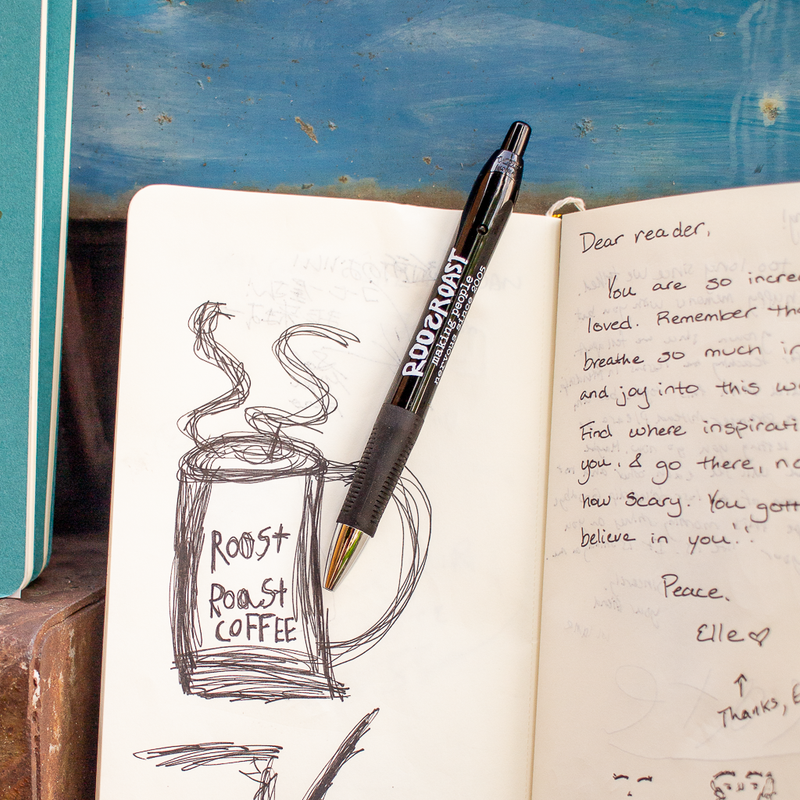 ROOST
ROAST
COFFEE
ROOSROAST
making people
nervous since 2005
Dear reader,
You are so incre
loved. Remember th
breathe so much in
and joy into this w
Find where inspirati
you. & go there, no
how scary. You gott
believe in you!!
Peace.
Elle♡
↑
Thanks, E